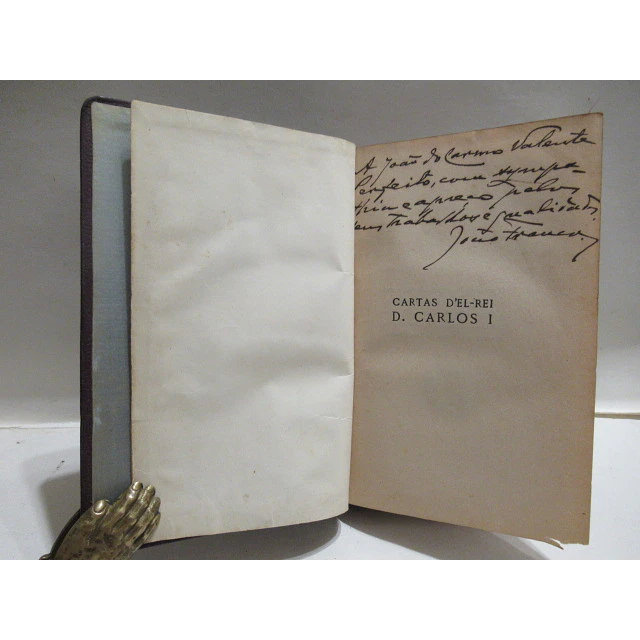 A João do Carmo Valente
Perfeito, com sympa-
thia e apreço pelos
seus trabalhos e qualidades
João Franco
CARTAS D'EL-REI
D. CARLOS I